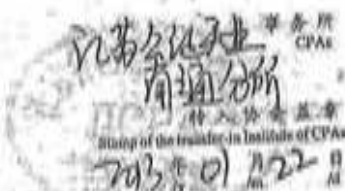 事务所
CPAs
南通分所
转入协会盖章
Stamp of the transfer-in Institute of CPAs
2013年01月22日